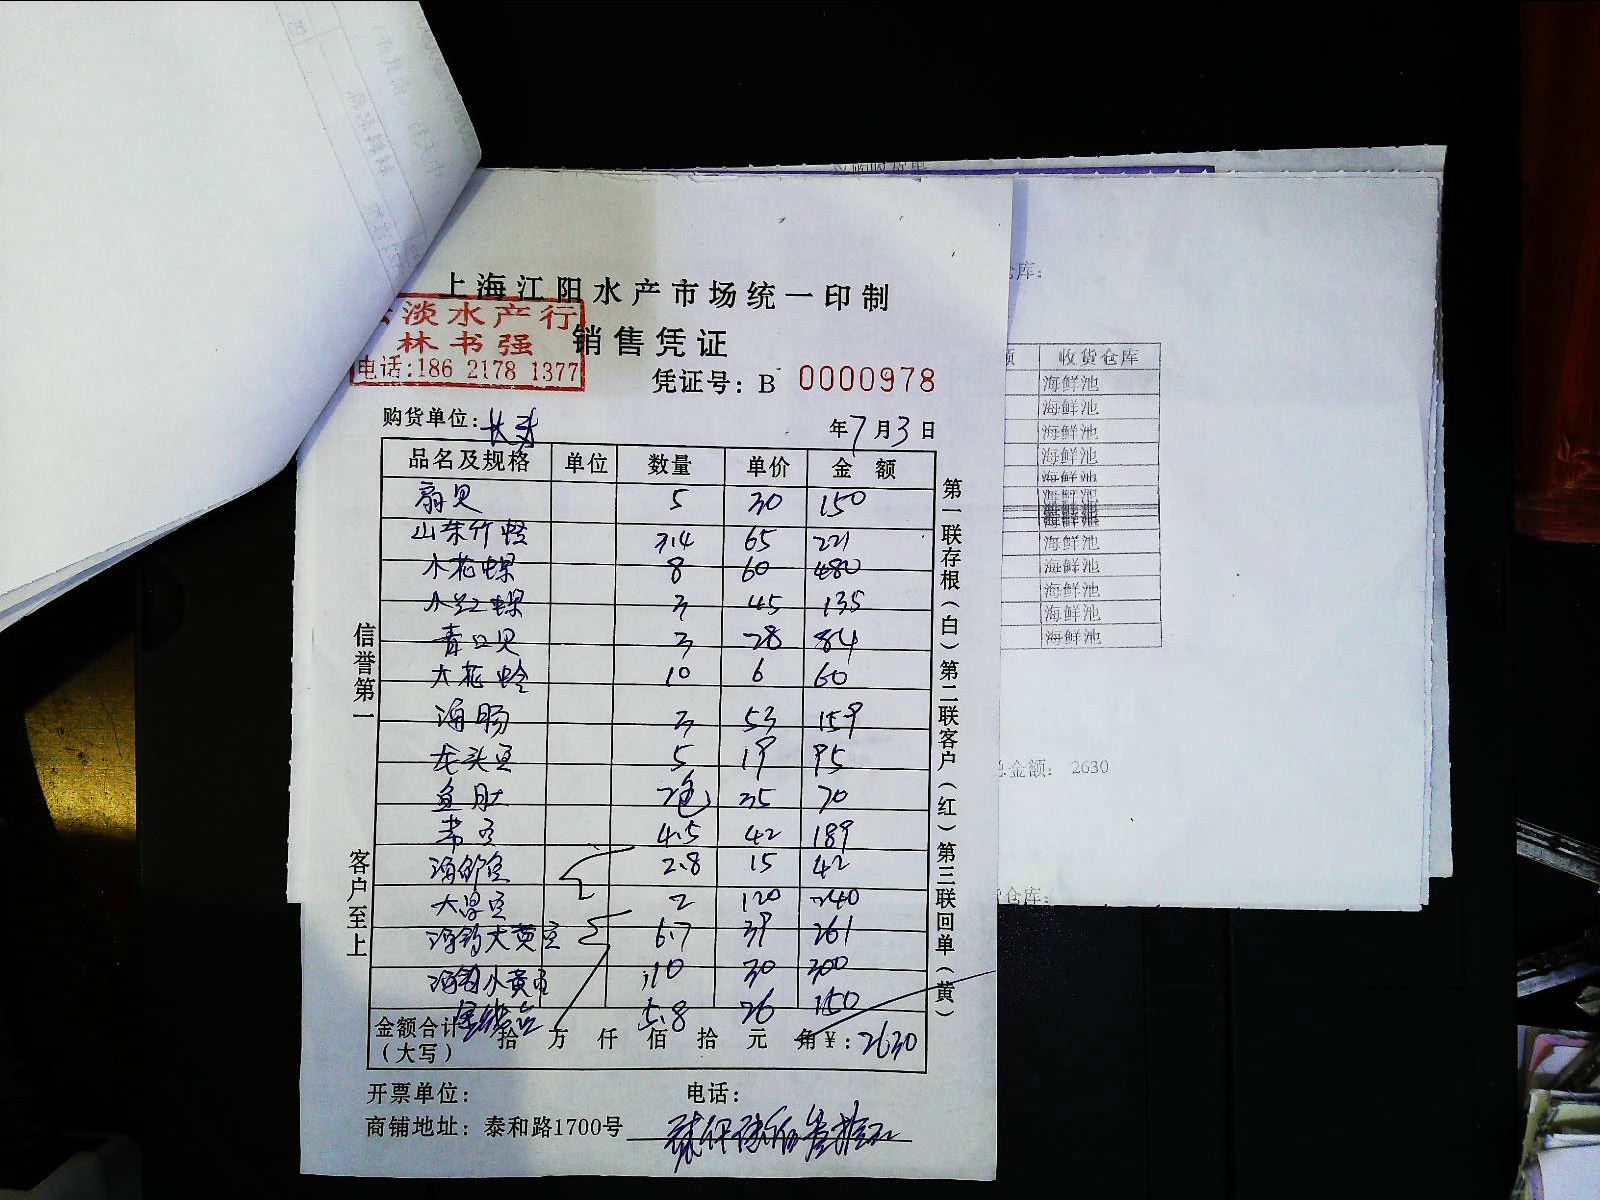 上海江阳水产市场统一印制
淡水产行
林书强
电话:186 2178 1377
销售凭证
凭证号: B 0000978
购货单位:
年7月3日
品名及规格 单位 数量 单价 金额
扇贝 5 30 150
山东竹蛏 3.4 65 221
木花螺 8 60 480
小红螺 3 45 135
青口贝 3 28 84
大花蛤 10 6 60
海肠 3 53 159
龙头鱼 5 19 95
鱼肚 2包 35 70
4.5 42 189
海鲈鱼 2.8 15 42
2 120 240
海钓大黄鱼 6.7 39 261
海钓小黄鱼 10 30 300
5.8 26 150
金额合计(大写) 拾 万 仟 佰 拾 元 角 ¥: 2630
开票单位: 电话:
商铺地址: 泰和路1700号
信誉第一
客户至上
第一联存根(白)第二联客户(红)第三联回单(黄)
仓库:
收货仓库
海鲜池
海鲜池
海鲜池
海鲜池
海鲜池
海鲜池
海鲜池
海鲜池
海鲜池
海鲜池
海鲜池
海鲜池
总金额: 2630
仓库: